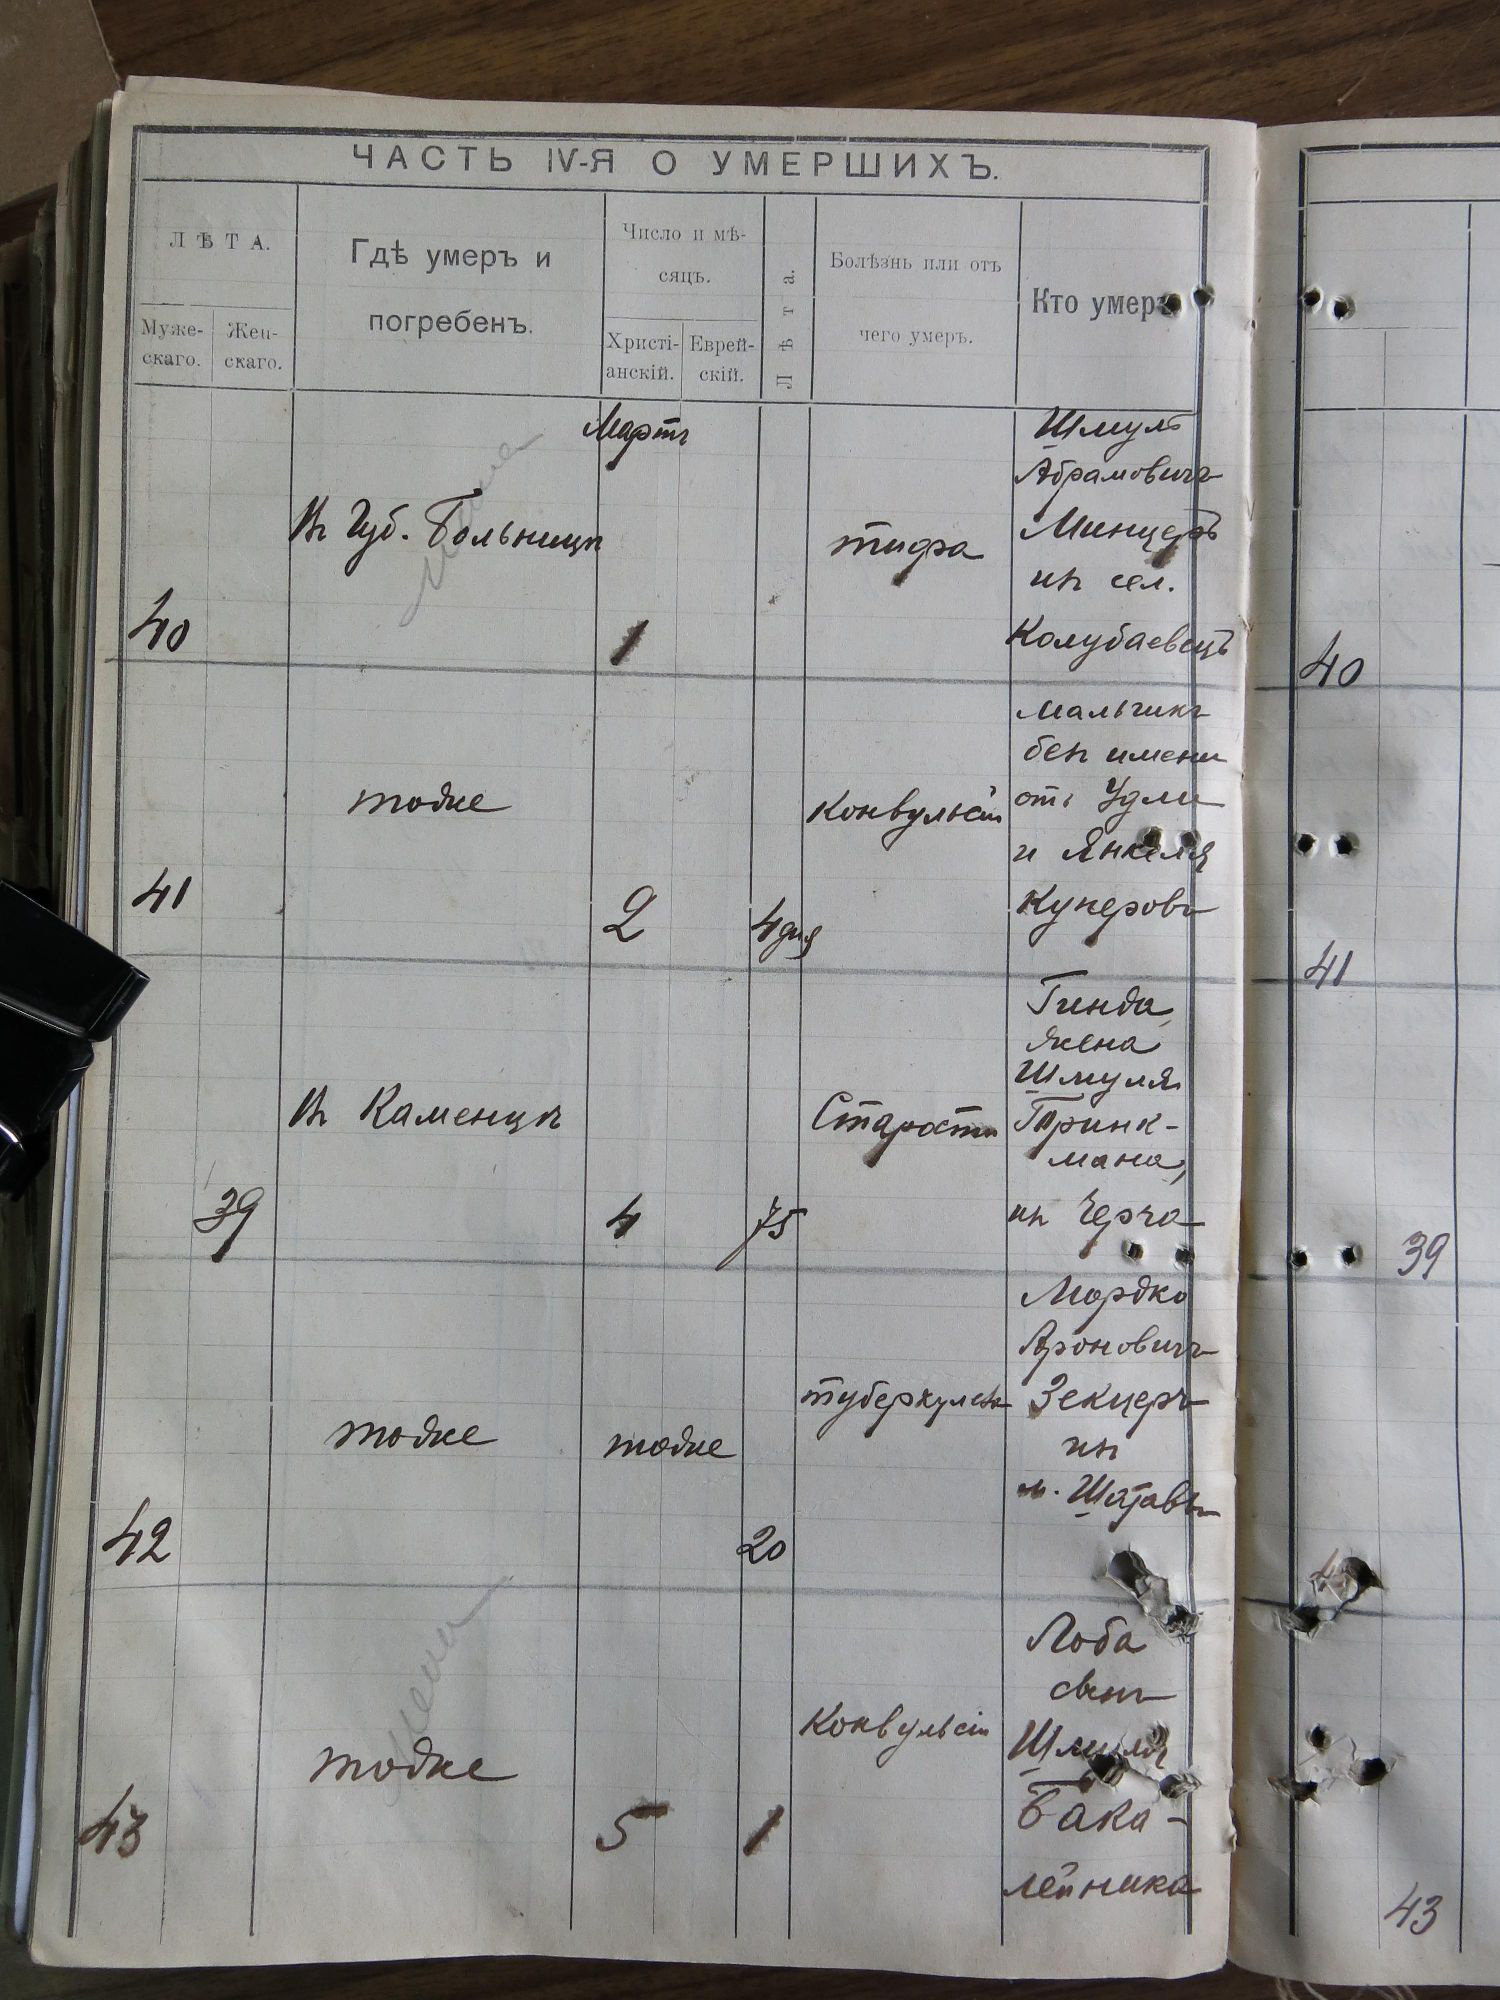 ЧАСТЬ IV-Я О УМЕРШИХЪ.
ЛѢТА.
Муже-
скаго.
Жен-
скаго.
Гдѣ умеръ и
погребенъ.
Число и мѣ-
сяцъ.
Христі-
анскій.
Еврей-
скій.
Лѣта.
Болѣзнь или отъ
чего умеръ.
Кто умеръ
Мартъ
40
Въ Губ. Больницѣ
1
тифа
Шмуль
Абрамовичъ
Минцеръ
изъ сел.
Колубаевецъ
40
41
тоже
2
4 дня
Конвульсіи
мальчикъ
безъ имени
отъ Удли
и Янкеля
Куперовъ
41
39
Въ Каменцѣ
4
75
Старости
Гинда,
жена
Шмуля
Тринк-
мана,
изъ Черча
39
42
тоже
тоже
20
туберкулеза
Мордко
Ароновичъ
Зекцеръ
изъ
м. Шатавы
43
тоже
5
1
Конвульсіи
Лоба
сынъ
Шмуля
Бака-
лейника
43